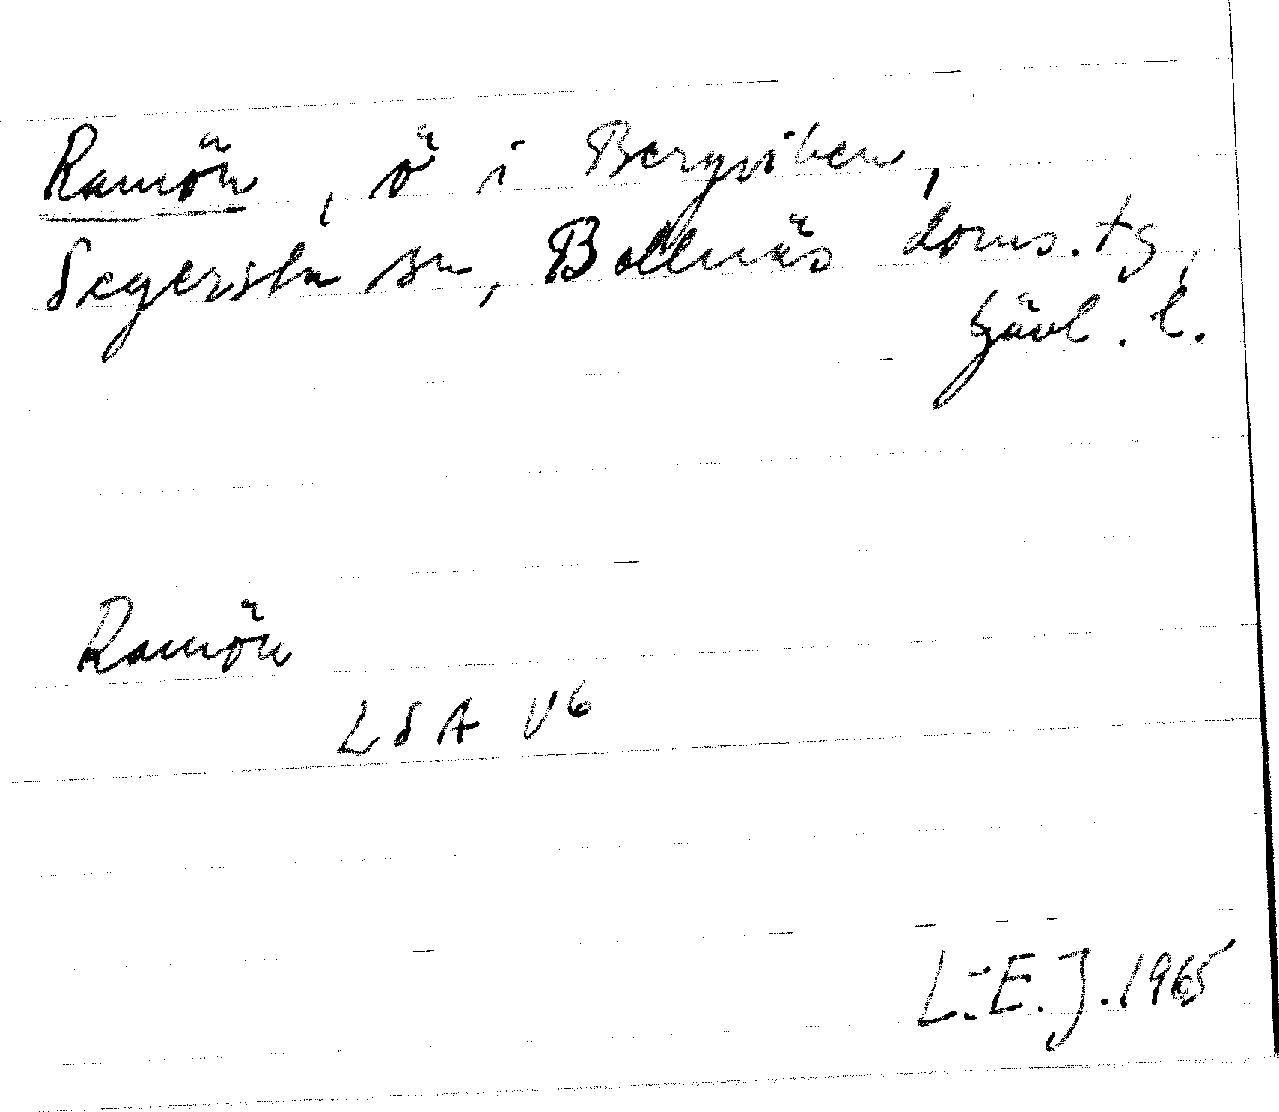 Ramön, ö i Bergviken,
Segersta sn, Bollnäs doms. tg,
Gävl. l.
Ramön
LSA V6
L.-E. J. 1965